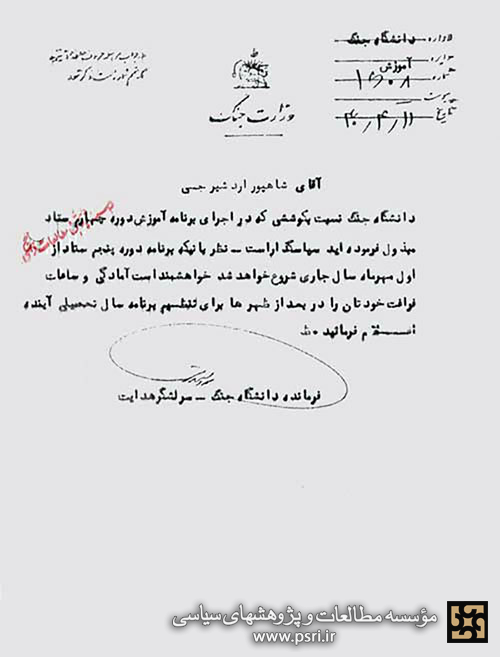 اداره دانشگاه جنگ
دایره آموزش
شماره ۱۶۰۸
پیوست
تاریخ ۲۰/۴/۱۱
در جواب
وزارت جنگ
آقای شاهپور ارد شیر جسی
دانشگاه جنگ نسبت بکوششی که در اجرای برنامه آموزش دوره چهارم ستاد
مبذول فرموده اید سپاسگذار است – نظر باینکه برنامه دوره پنجم ستاد از
اول مهرماه سال جاری شروع خواهد شد خواهشمند است آمادگی و ساعات
فراغت خودتان را در بعد از ظهر ها برای تنظیم برنامه سال تحصیلی آینده
فرمائید ۰ط
فرمانده دانشگاه جنگ – سرلشگر هدایت
مؤسسه مطالعات و پژوهشهای سیاسی
www.psri.ir